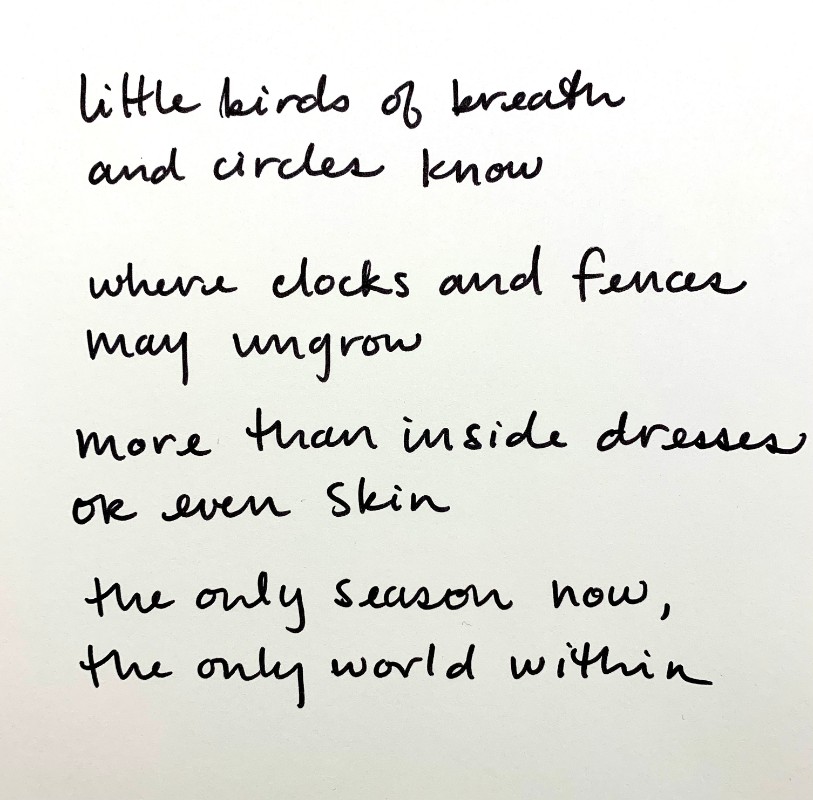 little birds of breath
and circles know
where clocks and fences
may ungrow
more than inside dresses
or even skin
the only season now,
the only world within